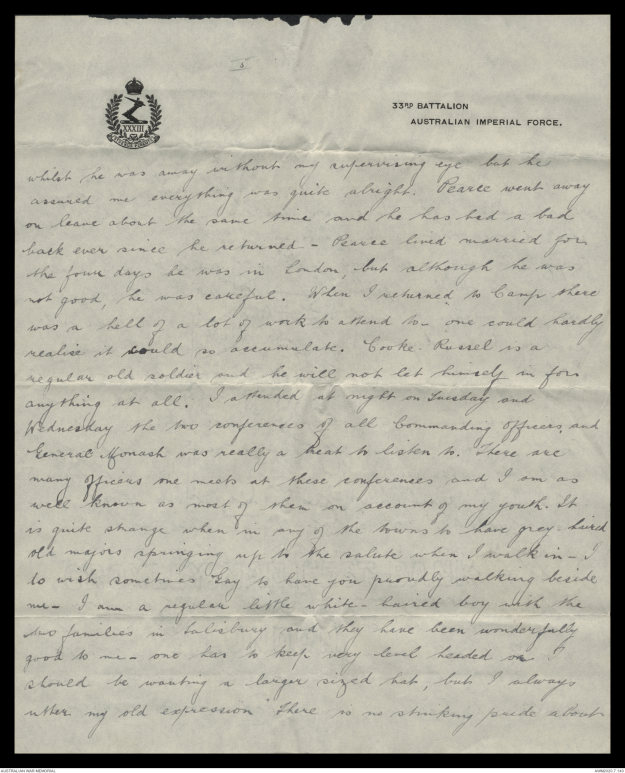 5
33RD BATTALION
AUSTRALIAN IMPERIAL FORCE.
XXXIII
whilst he was away without my supervising eye but he
assured me everything was quite alright. Pearce went away
on leave about the same time and he has had a bad
back ever since he returned - Pearce lived married for
the four days he was in London, but although he was
not good, he was careful. When I returned to Camp there
was a hell of a lot of work to attend to - one could hardly
realise it could so accumulate. Cooke-Russel is a
regular old soldier and he will not let himself in for
anything at all. I attended at night on Tuesday and
Wednesday the two conferences of all Commanding Officers, and
General Monash was really a treat to listen to. There are
many officers one meets at these conferences and I am as
well known as most of them on account of my youth. It
is quite strange when in any of the towns to have grey-haired
old majors springing up to the salute when I walk in - I
do wish sometimes Gay to have you proudly walking beside
me - I am a regular little white-haired boy with the
two families in Salisbury and they have been wonderfully
good to me - one has to keep very level headed or I
should be wanting a larger sized hat, but I always
utter my old expression "There is no stinking pride about
AUSTRALIAN WAR MEMORIAL